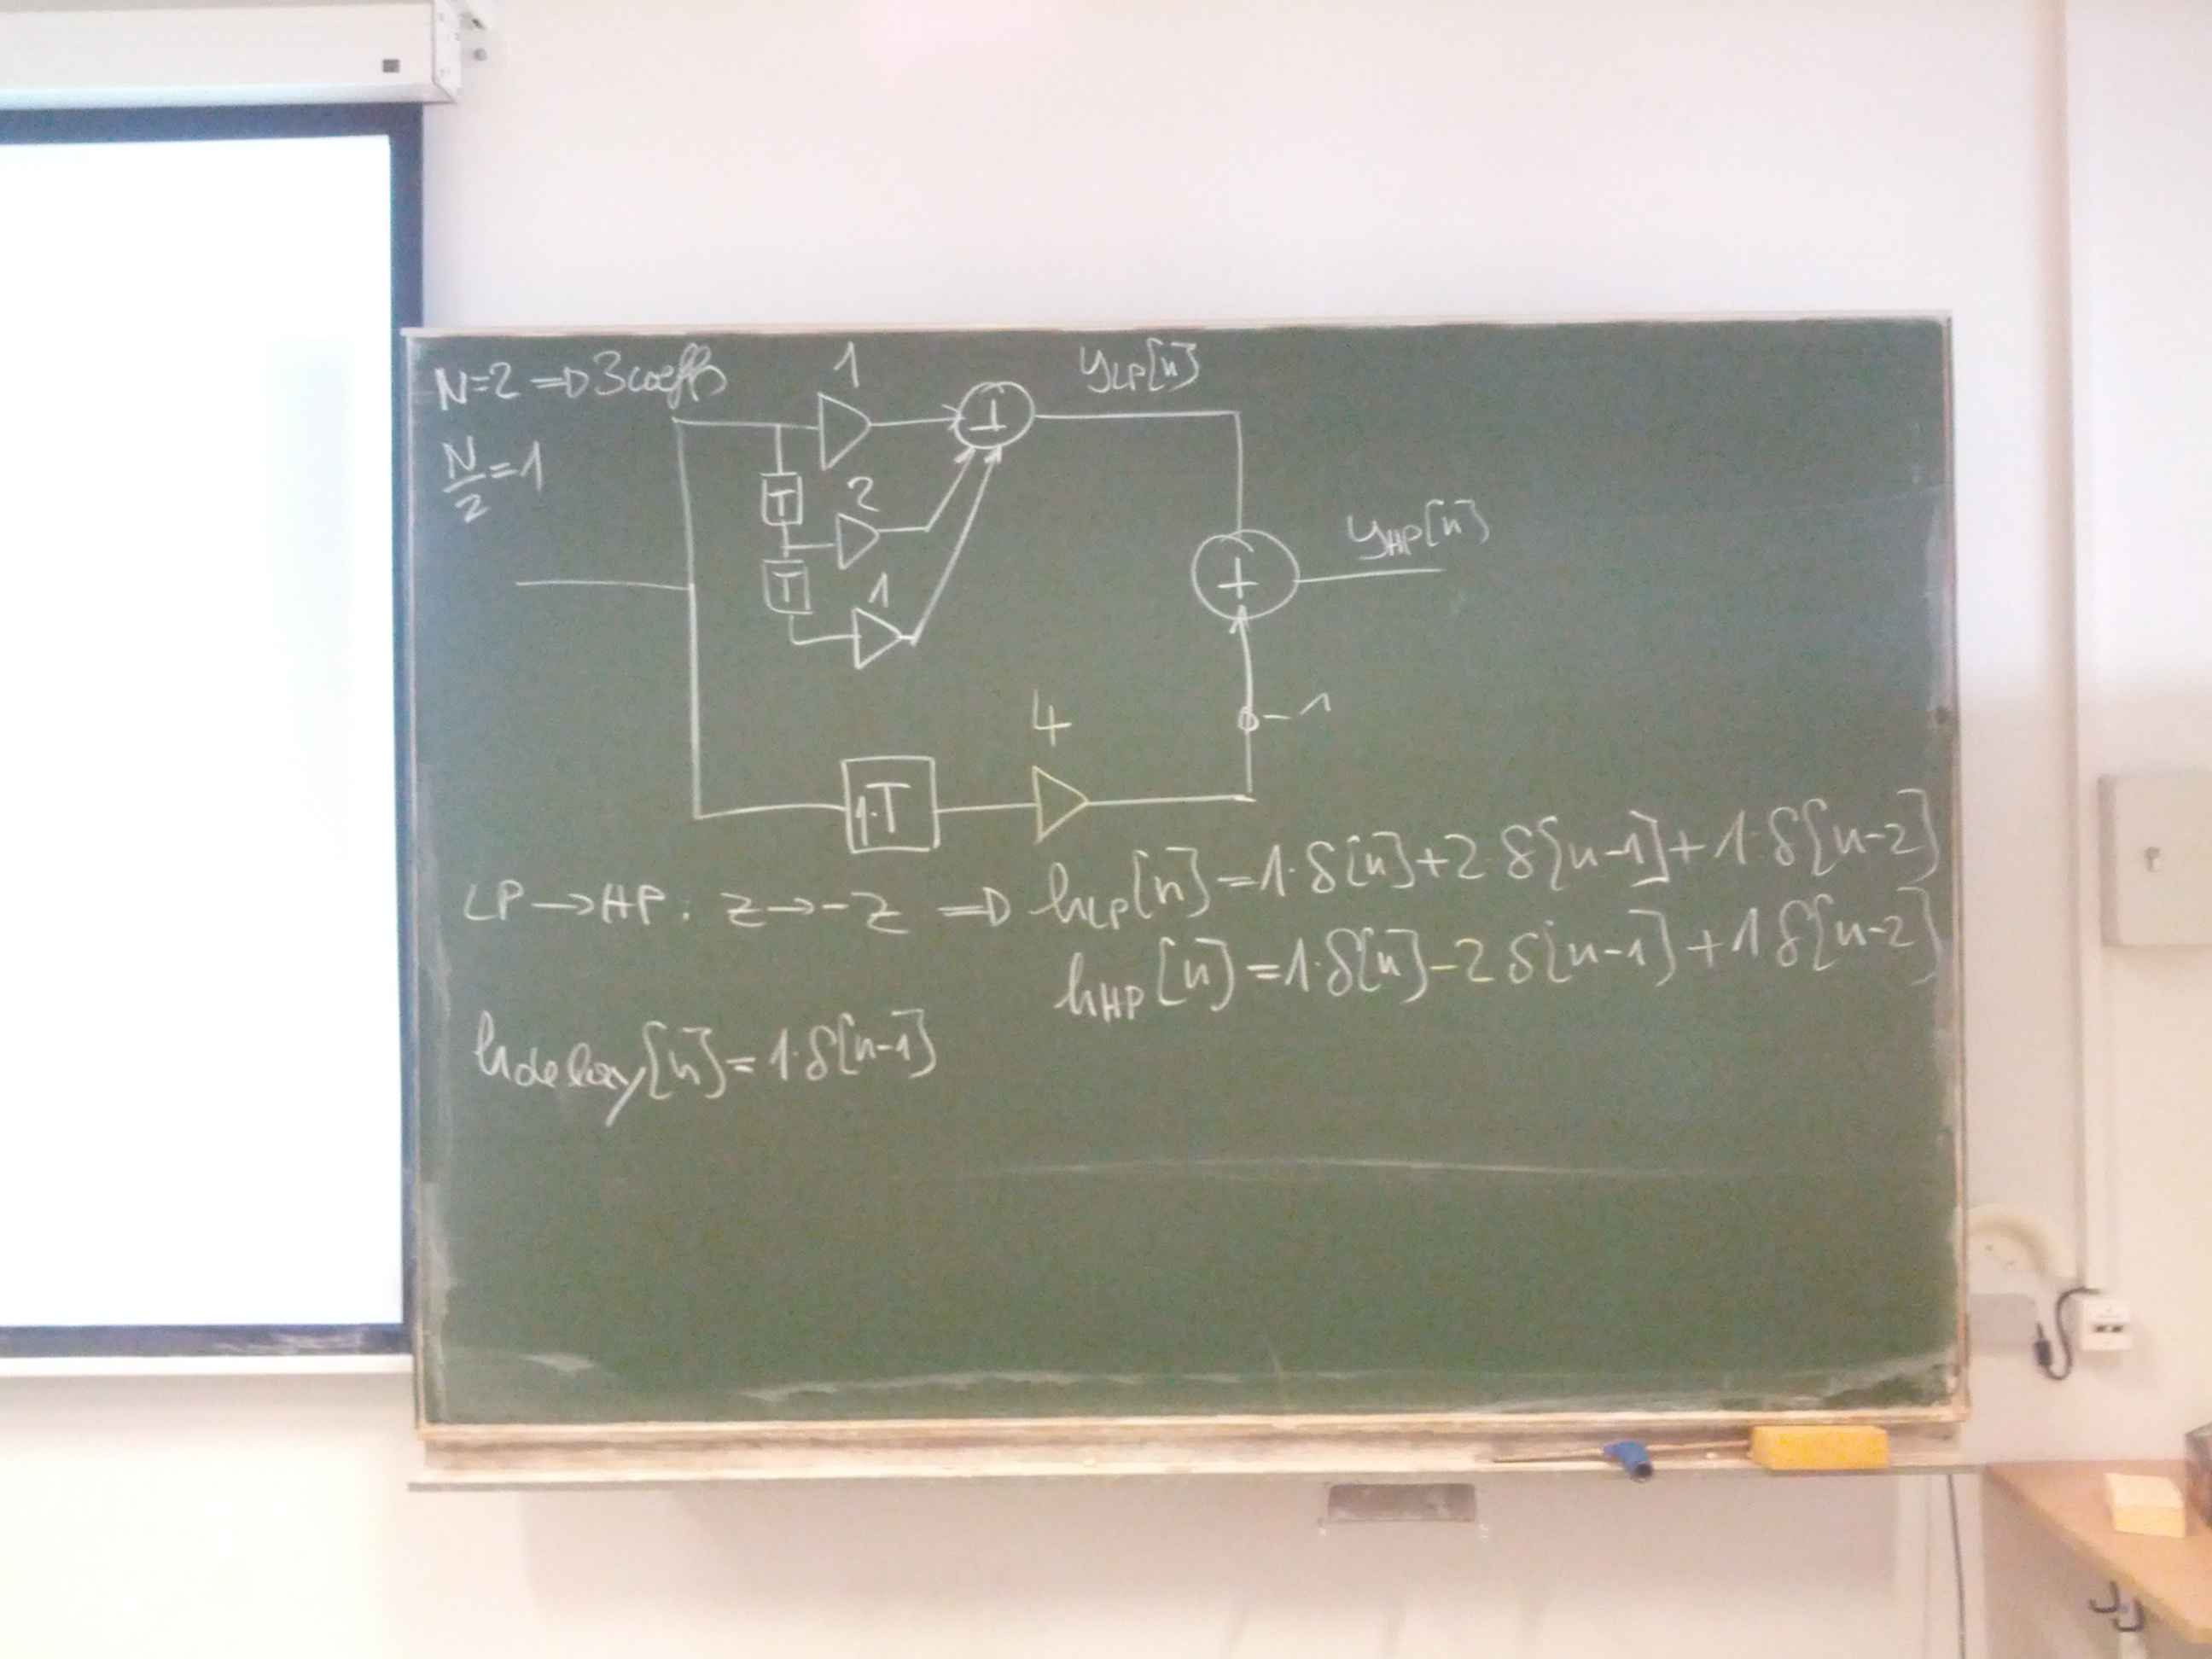 N=2 ⇒ 3 coeffs
N/2=1
1
2
1
T
T
+
y_LP[n]
+
y_HP[n]
-1
4
1·T
LP→HP: z→-z ⇒ h_LP[n]=1·δ[n]+2·δ[n-1]+1·δ[n-2]
h_HP[n]=1·δ[n]-2δ[n-1]+1δ[n-2]
h_delay[n]=1·δ[n-1]